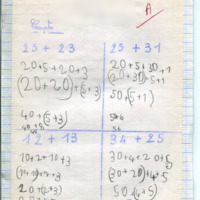 A
25 + 23
20+5+20+3
(20+20)+(5+3)
40+(5+3)
25 + 31
20+5+30+1
(20+30)+(5+1)
50+(5+1)
56
12 + 13
10+2+10+3
20+(2+3)
34 + 25
30+4+20+5
(30+20)+(4+5)
50+(4+5)